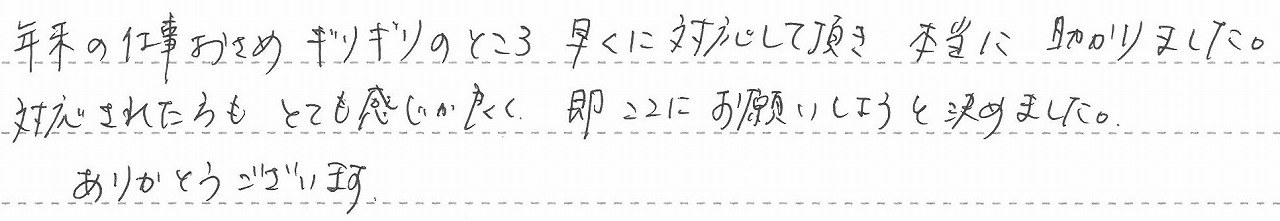 年末の仕事おさめ ギリギリのところ 早くに対応して頂き 本当に 助かりました。
対応された方も とても感じが良く、即ここにお願いしようと決めました。
ありがとうございます。